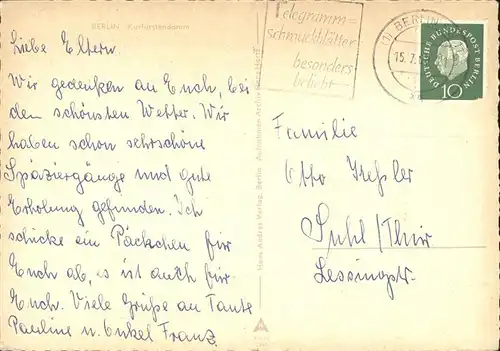 BERLIN Kurfürstendamm
Liebe Eltern.
Wir gedenken an Euch, bei
dem schönsten Wetter. Wir
haben schon sehr schöne
Spaziergänge und gute
Erholung gefunden. Ich
schicke ein Päckchen für
Euch ab, es ist auch für
Euch. Viele Grüße an Tante
Pauline u. Onkel Franz.
Hans Andres Verlag, Berlin
Telegramm=
schmuckblätter
besonders
beliebt
(1) BERLIN
15.7.
DEUTSCHE BUNDESPOST BERLIN
10
Familie
Otto
Suhl/Thür
Lessingstr.